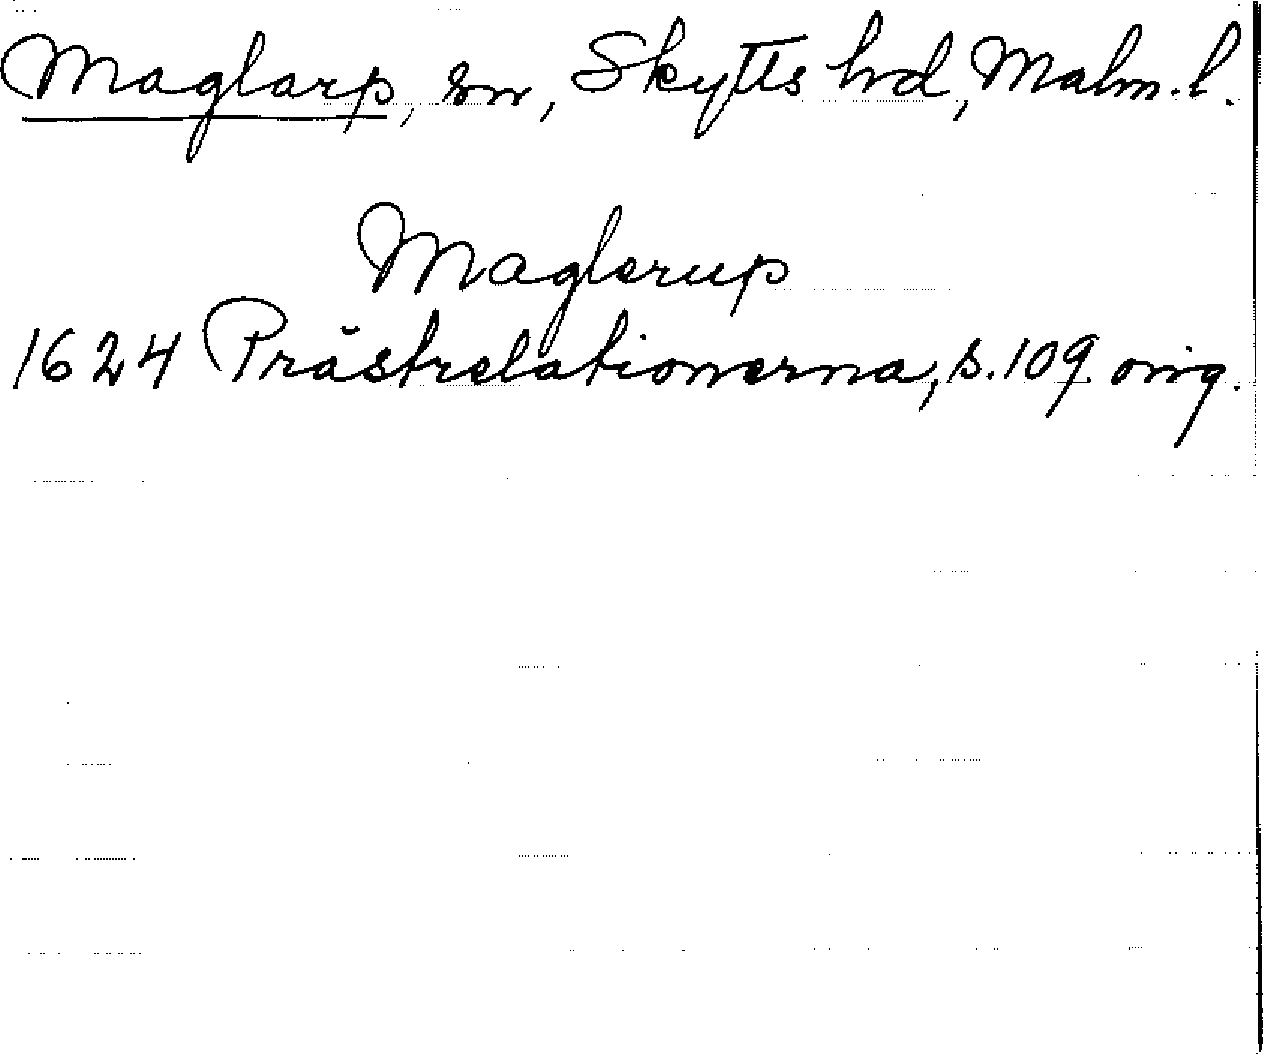 Maglarp, sn, Skytts hd, Malm. l.
Maglerup
1624 Prästrelationerna, s. 109 orig.